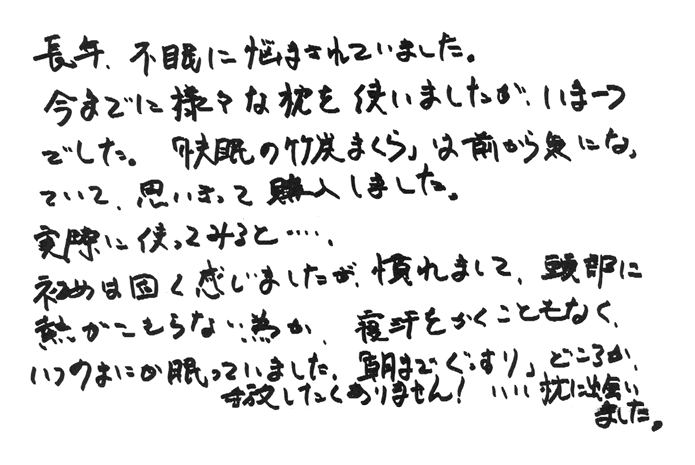 長年、不眠に悩まされていました。
今までに様々な枕を使いましたが、いま一つ
でした。「快眠の竹炭まくら」は前から気になっ
ていて、思いきって購入しました。
実際に使ってみると‥‥、
初めは固く感じましたが、慣れまして、頭部に
熱がこもらない為か、寝汗をかくこともなく、
いつのまにか眠っていました。「朝までぐっすり」どころか、
手放したくありません！ いい枕に出会い
ました。